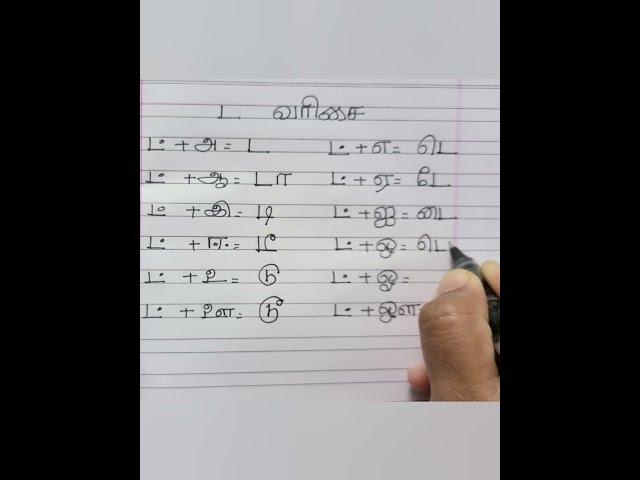 ட வரிசை
ட் + அ = ட ட் + எ = டெ
ட் + ஆ = டா ட் + ஏ = டே
ட் + இ = டி ட் + ஐ = டை
ட் + ஈ = டீ ட் + ஒ = டெ
ட் + உ = டு ட் + ஓ =
ட் + ஊ = டூ ட் + ஔ =